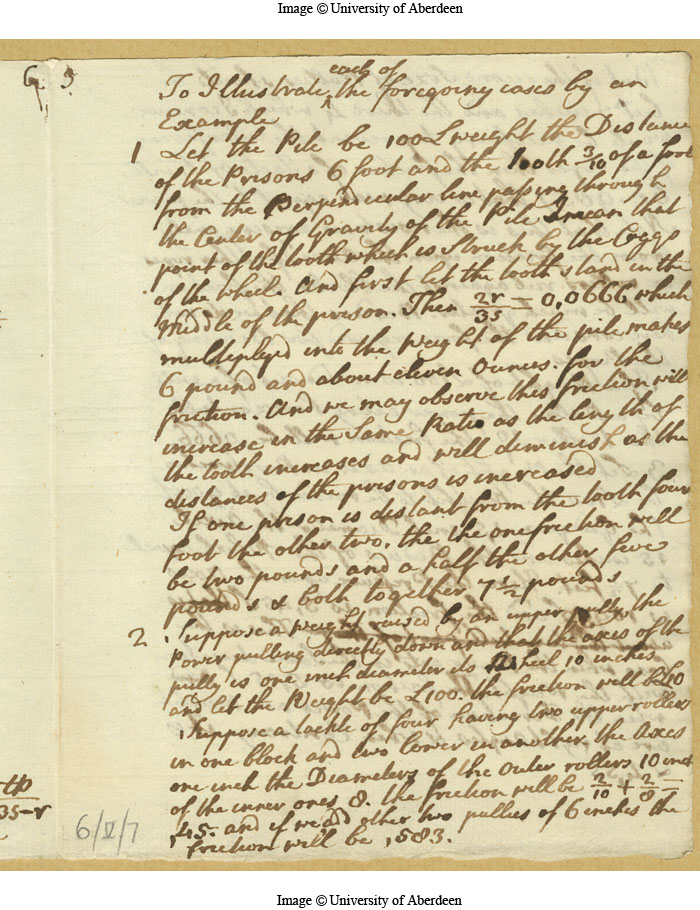 Image © University of Aberdeen
6. 5.
To Illustrate each of the foregoing cases by an
Example
1 Let the Pile be 100L weight the Distance
of the Prisons 6 foot and the tooth 3/10 of a foot
from the Perpendicular line passing through
the Center of Gravity of the Pile I mean that
point of the tooth which is Struck by the Coggs
of the wheel. And first let the tooth stand in the
Middle of the prison. Then 2r/3s = 0.0666 which
multiplyd into the Weight of the pile makes
6 pound and about eleven Ounces. for the
friction. And we may observe this friction will
increase in the Same Ratio as the length of
the tooth increases and will diminish as the
distances of the prisons is increased
If one prison is distant from the tooth four
foot the other two. the the one friction will
be two pounds and a half the other five
pounds & both together 7 1/2 pounds
2 Suppose a weight raised by an upper pully, the
Power pulling directly down and that the axes of the
pully is one inch diameter its Wheel 10 inches
and let the Weight be £100. the friction will be £10
Suppose a tackle of four having two upper rollers
in one block and two lower in another the Axes
one inch the Diameters of the outer rollers 10 inch
of the inner ones 8. the friction will be 2/10 + 2/8 =
,45. and if we add other two pullies of 6 inches the
friction will be ,583.
3s-r
6/V/7
Image © University of Aberdeen